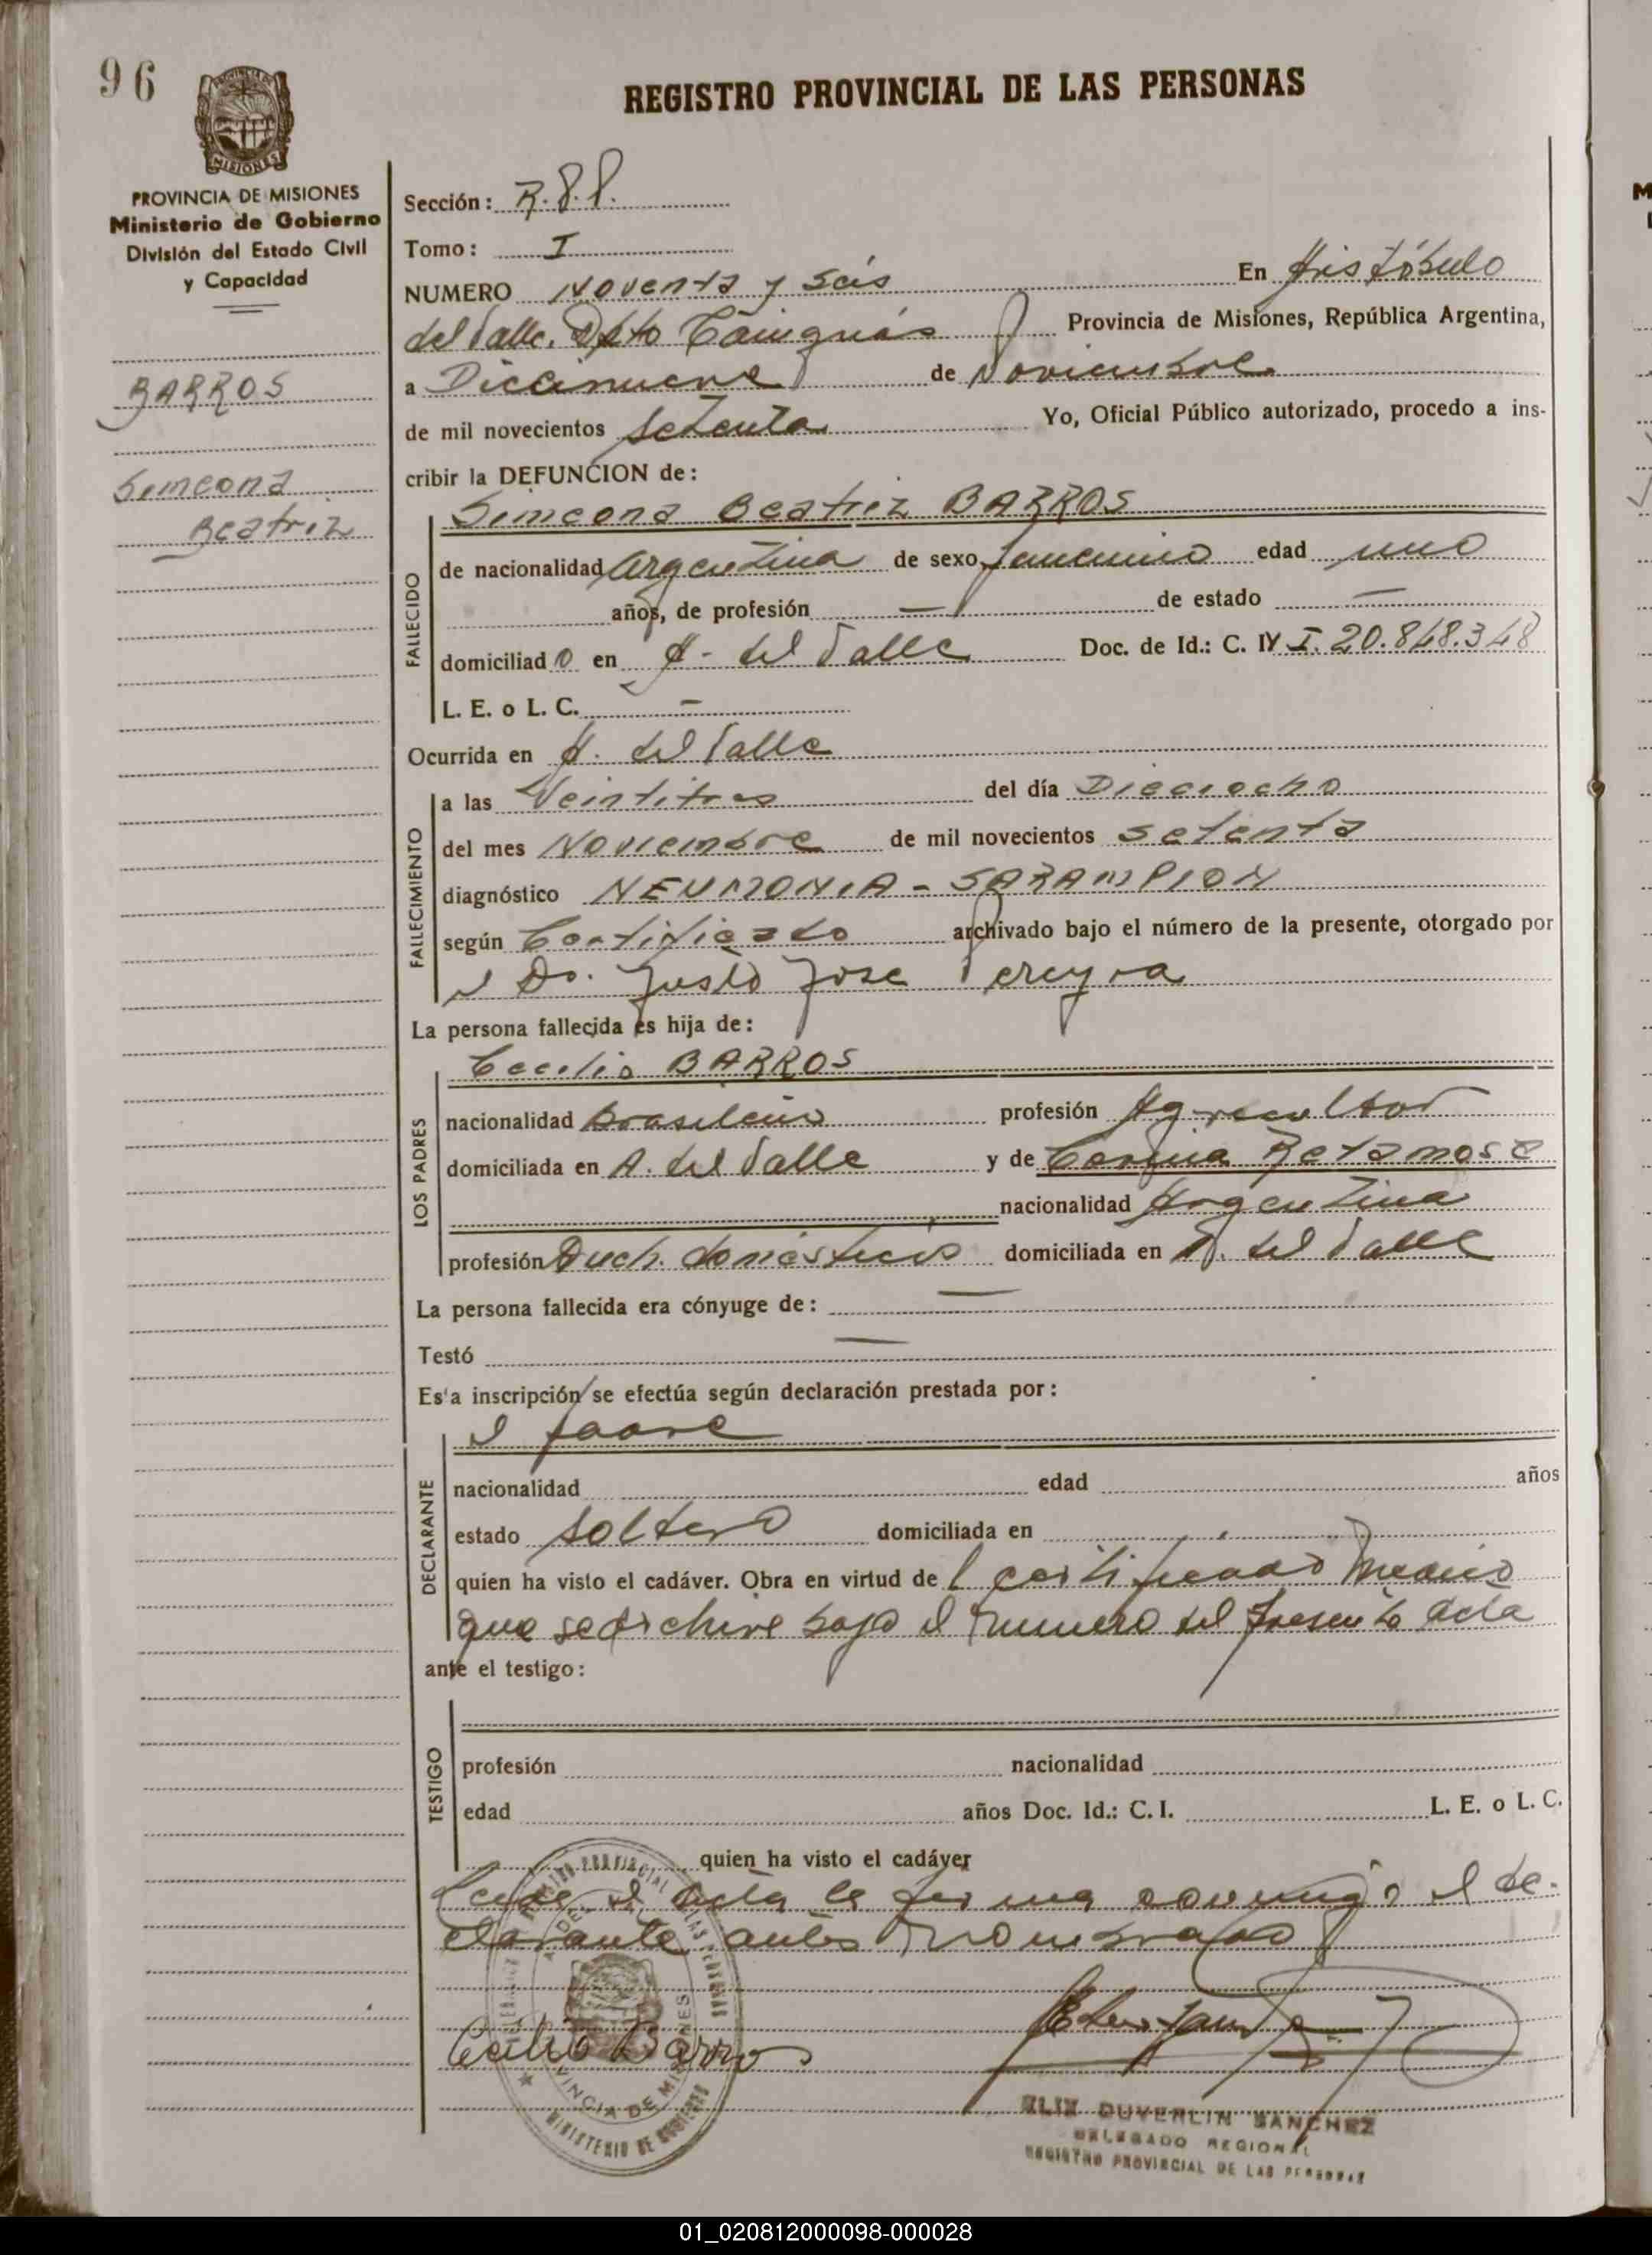 96
REGISTRO PROVINCIAL DE LAS PERSONAS
MISIONES
PROVINCIA DE MISIONES
Ministerio de Gobierno
División del Estado Civil
y Capacidad
BARROS
Simeona
Beatriz
Sección: R.P.P.
Tomo: I
NUMERO Noventa y seis En Aristóbulo
del Valle. Dpto Cainguás Provincia de Misiones, República Argentina,
a Diecinueve de Noviembre
de mil novecientos setenta Yo, Oficial Público autorizado, procedo a ins-
cribir la DEFUNCION de:
Simeona Beatriz BARROS
FALLECIDO
de nacionalidad Argentina de sexo femenino edad uno
años, de profesión — de estado —
domiciliado en A. del Valle Doc. de Id.: C. I. 20.848.348
L. E. o L. C. —
Ocurrida en A. del Valle
FALLECIMIENTO
a las Veintitres del día Dieciocho
del mes Noviembre de mil novecientos setenta
diagnóstico NEUMONIA - SARAMPION
según Certificado archivado bajo el número de la presente, otorgado por
el Dr. Justo Jose Pereyra
La persona fallecida es hija de:
Cecilio BARROS
LOS PADRES
nacionalidad brasileño profesión Agricultor
domiciliada en A. del Valle y de Retamose
nacionalidad Argentina
profesión Queh. domésticos domiciliada en A. del Valle
La persona fallecida era cónyuge de: —
Testó —
Es'a inscripción se efectúa según declaración prestada por:
el padre
DECLARANTE
nacionalidad edad años
estado soltero domiciliada en
quien ha visto el cadáver. Obra en virtud del certificado Medico
que se archive bajo el numero del presente acta
ante el testigo:
TESTIGO
profesión nacionalidad
edad años Doc. Id.: C. I. L. E. o L. C.
quien ha visto el cadáver
Leida el acta la firma conmigo el de-
clarante antes nombrado
Cecilio Barros
PROVINCIA DE MISIONES
MINISTERIO DE GOBIERNO
DUVERLIN SANCHEZ
DELEGADO REGIONAL
REGISTRO PROVINCIAL DE LAS PERSONAS
01_020812000098-000028